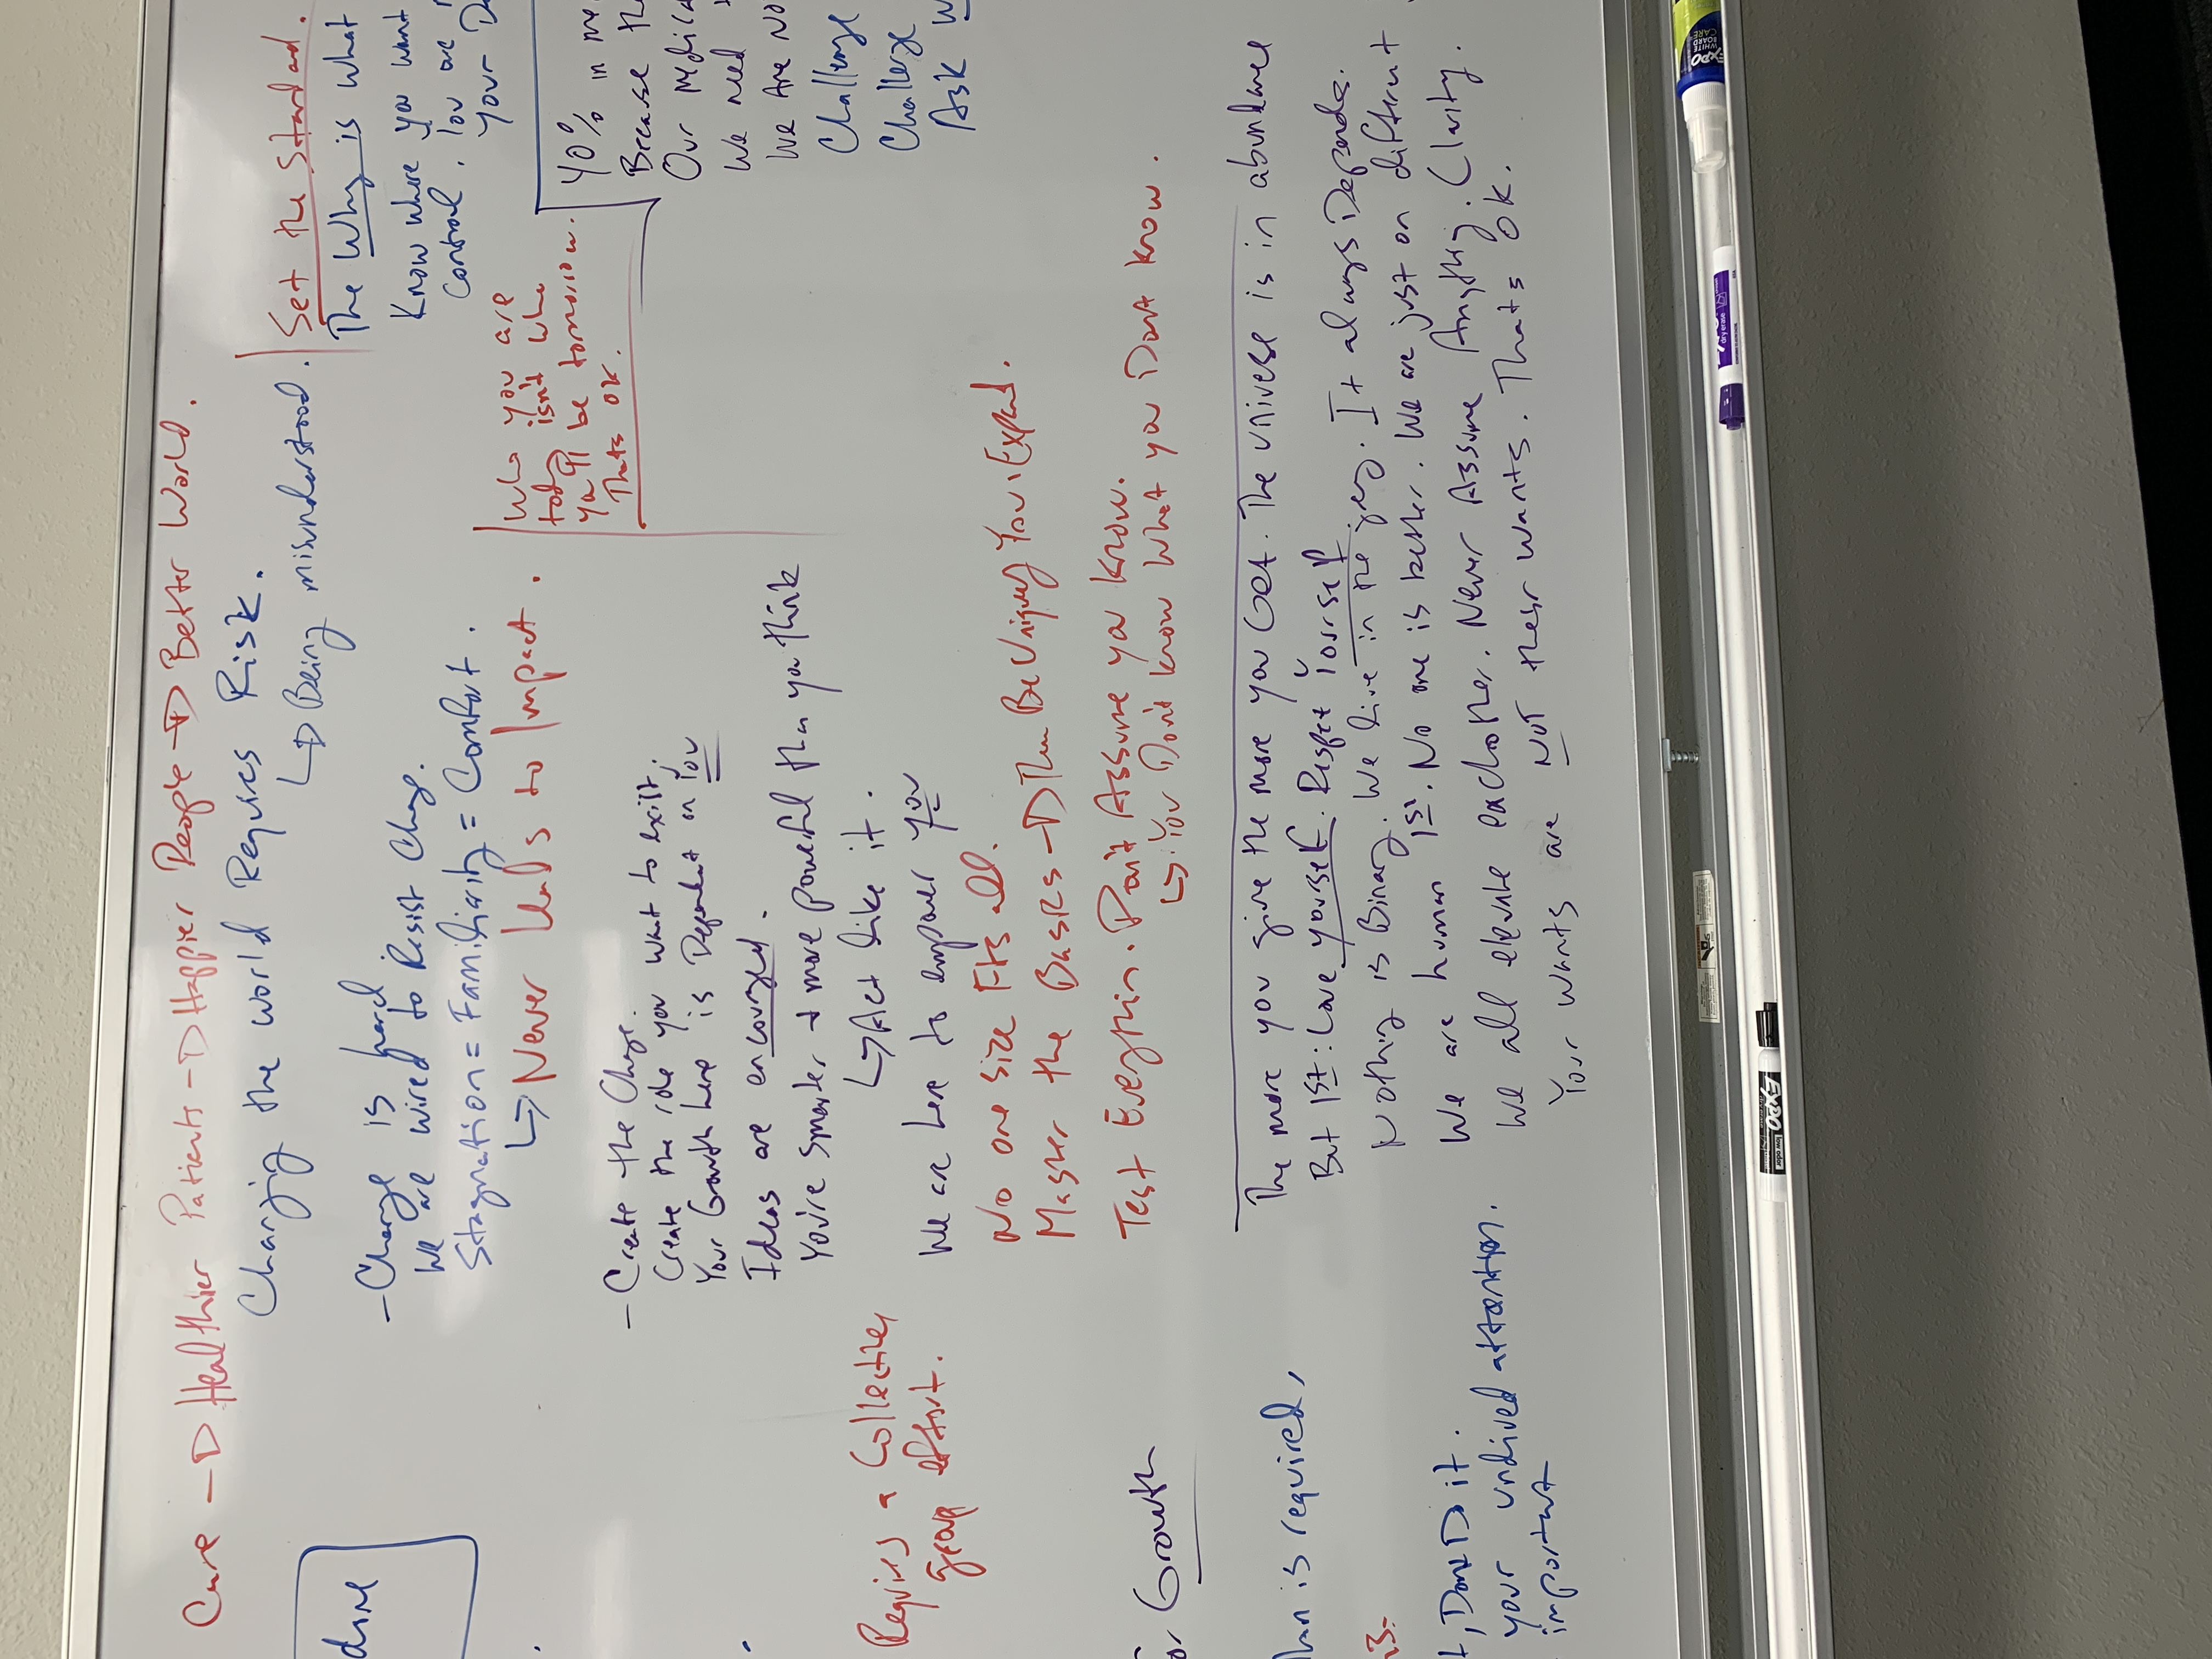 Care → Healthier Patients → Happier People → Better World.
Changing the world Requires Risk.
↳ Being misunderstood.
- Change is hard
We are wired to Resist Change.
Stagnation = Familiarity = Comfort.
↳ Never leads to Impact.
- Create the Change.
Create the role you want to exist.
Your Growth here is Dependent on You
Ideas are encouraged.
You're smarter + more powerful than you think
↳ Act like it.
We are here to empower you
No one size Fits all.
Master the Basics → Then Be Uniquely You. Expand.
Test Everythin. Don't Assume you know.
↳ You Don't know what you Dont know.
The more you give the more you Get. The universe is in abundance
But 1st: Love yourself. Respet Yourself
Nothing is Binary. We live in the grey. It always Depends.
We are human 1st. No one is better. We are just on different
We all elevate eachother. Never Assume Anything. Clarity.
Your wants are NOT their wants. Thats ok.
Set the Standard.
The Why is what
Know where you want
Control. You are
Your
Who you are
today isn't who
you'll be tomorrow.
Thats ok.
40% in
Break
Our Medica
We need
We Are No
Challenge
Challenge
Ask
dine
Requires a Collective
group effort.
Growth
is required,
, Dont D it.
your undived attention.
important
EXPO
WHITE BOARD CARE
dry erase
EXPO
low odor